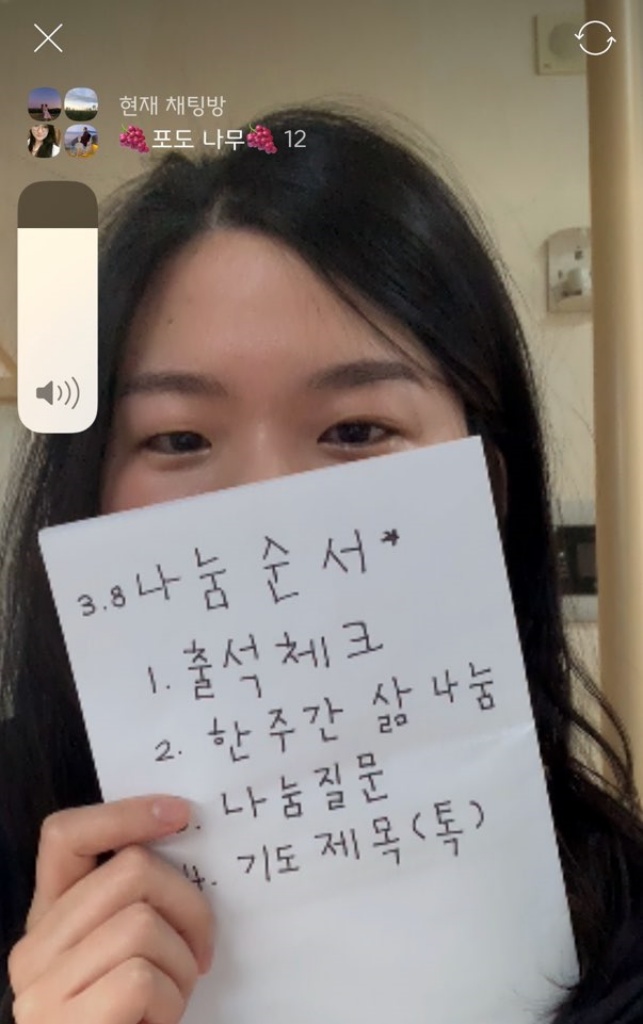 현재 채팅방
🍇포도 나무🍇 12
3.8 나눔 순서*
1. 출석체크
2. 한 주간 삶 나눔
3. 나눔질문
4. 기도제목(톡)